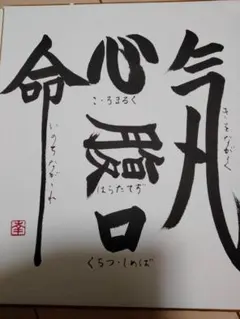 気
きをながく
心
こゝろまるく
腹
はらたてず
口
くちつゝしめば
命
いのちながかれ